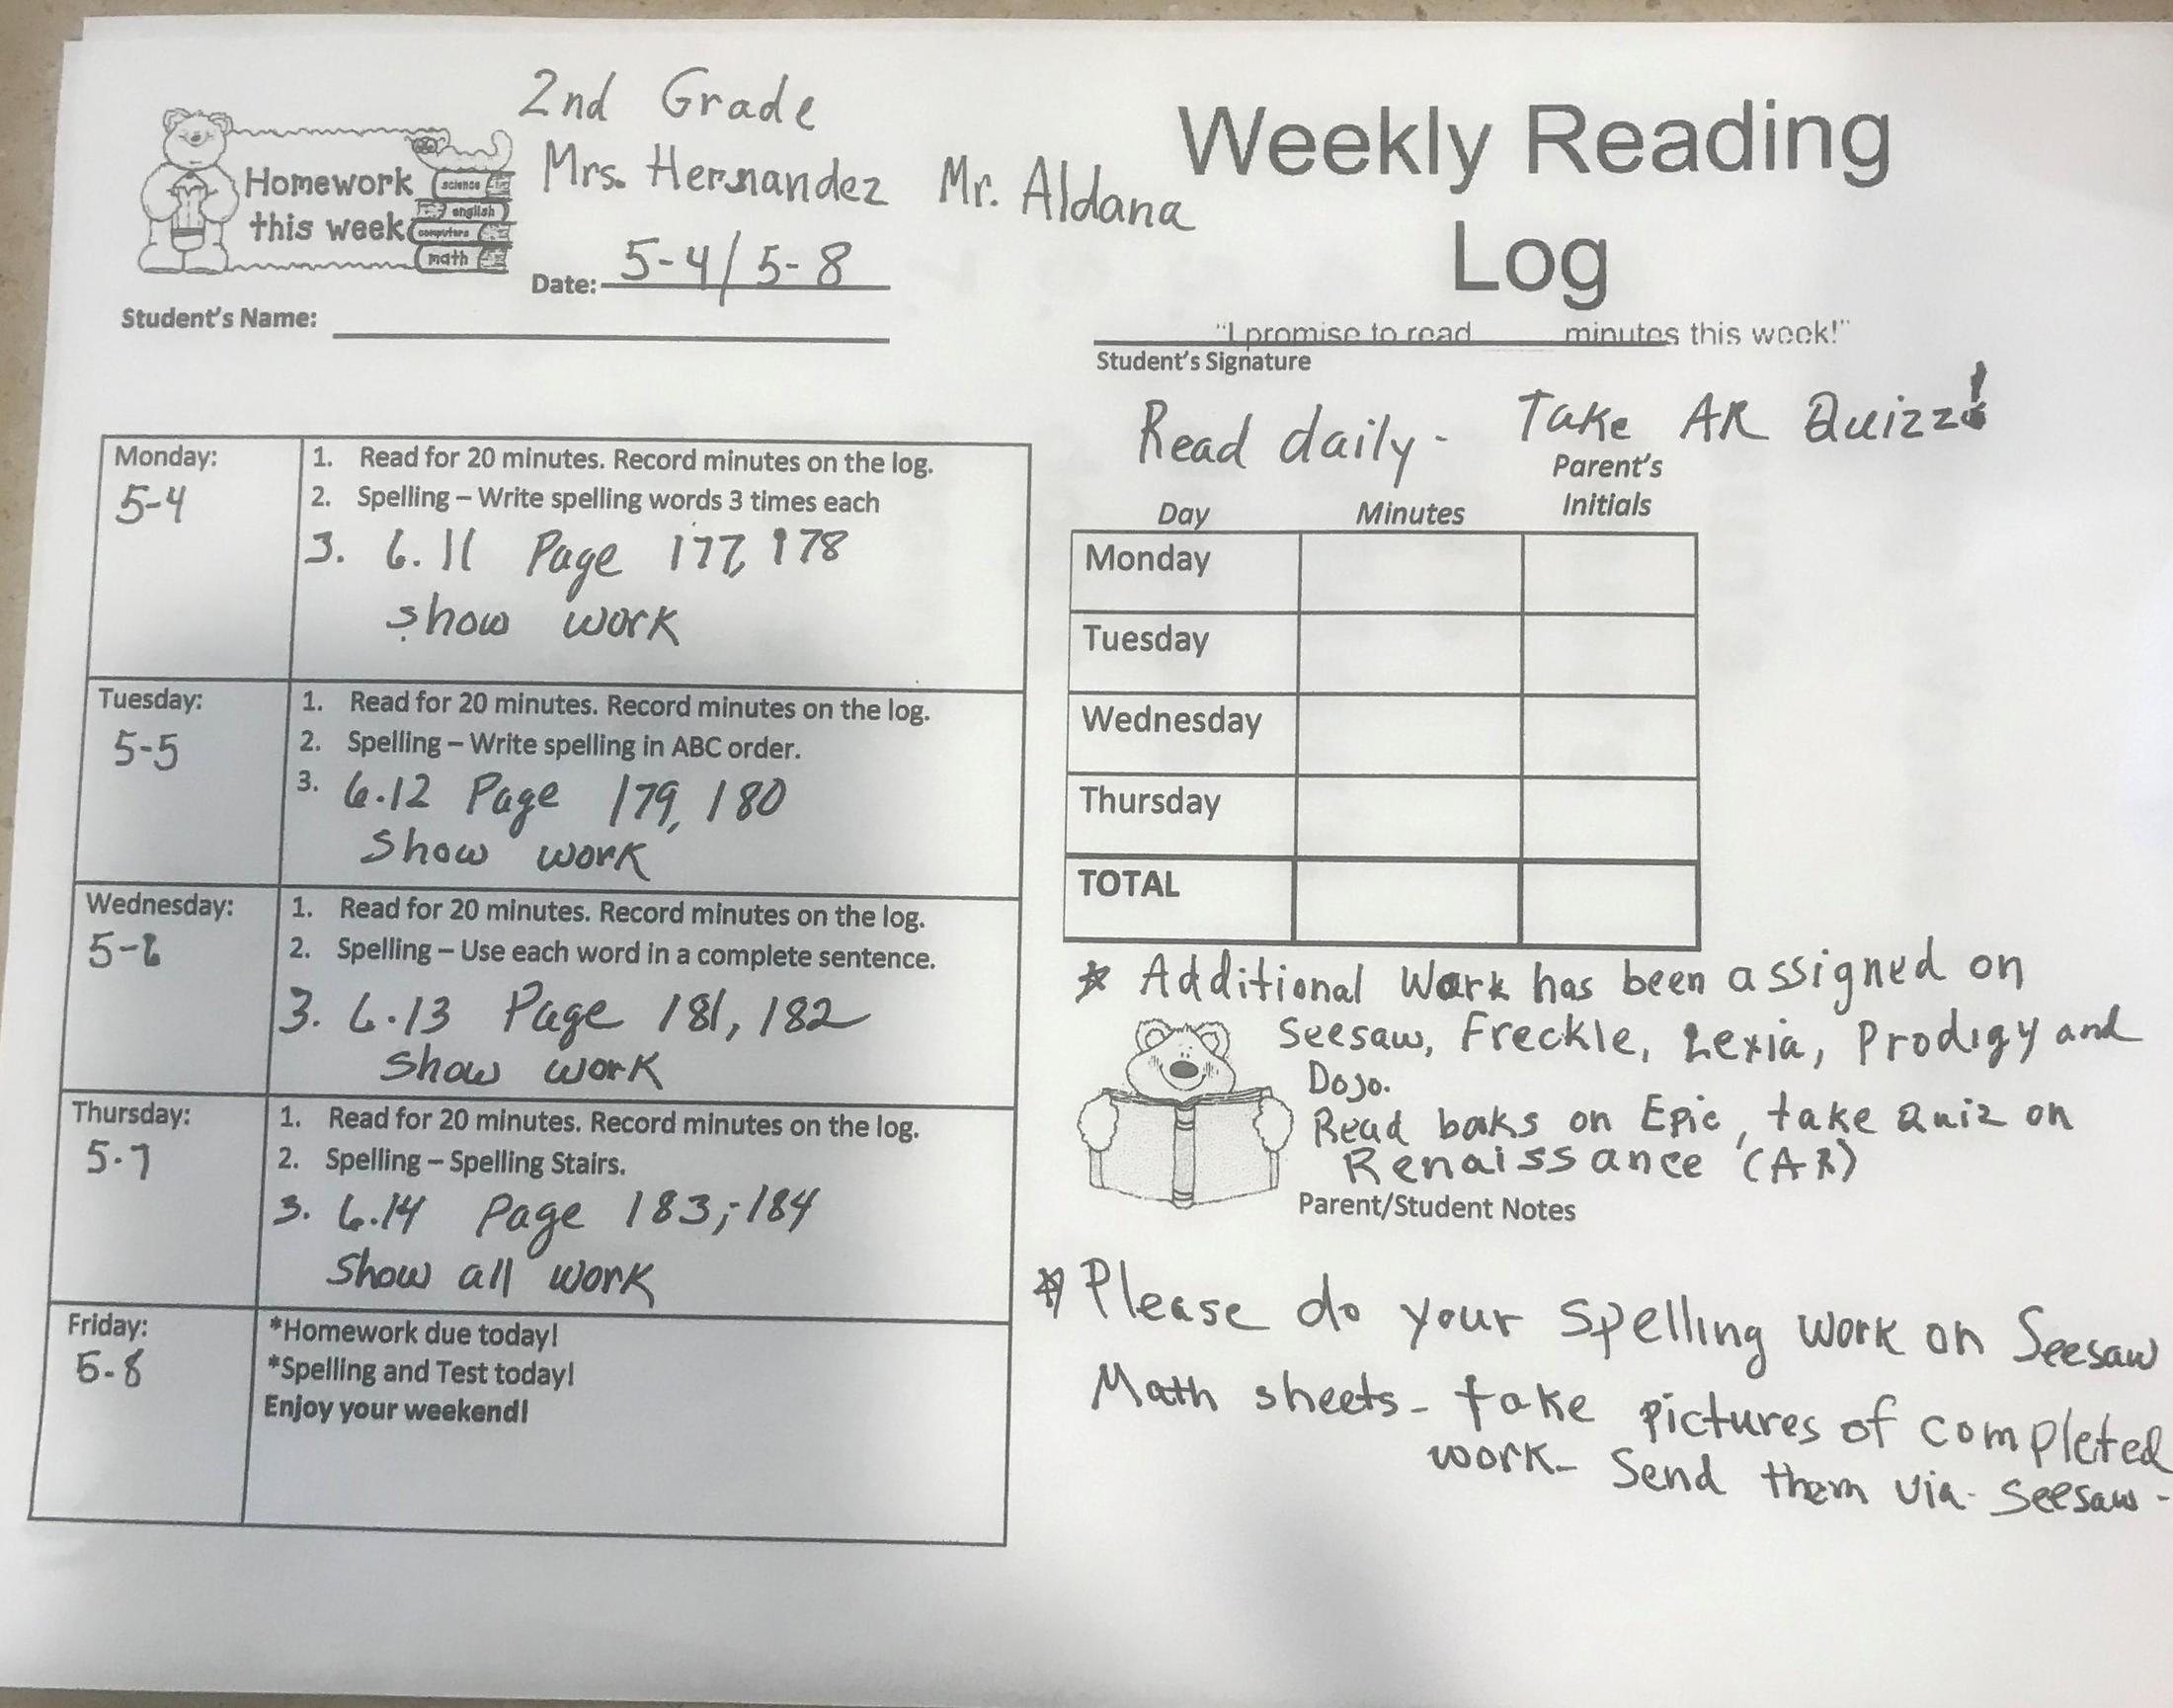 2nd Grade
Mrs. Hernandez Mr. Aldana
Homework
this week
science
english
computers
math
Date: 5-4/5-8
Student's Name:
Weekly Reading
Log
"I promise to read minutes this week!"
Student's Signature
Read daily- Take AR Quizz!
Monday:
5-4
1. Read for 20 minutes. Record minutes on the log.
2. Spelling – Write spelling words 3 times each
3. 6.11 Page 177, 178
show work
Tuesday:
5-5
1. Read for 20 minutes. Record minutes on the log.
2. Spelling – Write spelling in ABC order.
3. 6.12 Page 179, 180
Show work
Wednesday:
5-6
1. Read for 20 minutes. Record minutes on the log.
2. Spelling – Use each word in a complete sentence.
3. 6.13 Page 181, 182
Show work
Thursday:
5-7
1. Read for 20 minutes. Record minutes on the log.
2. Spelling – Spelling Stairs.
3. 6.14 Page 183,-184
Show all work
Friday:
5-8
*Homework due today!
*Spelling and Test today!
Enjoy your weekend!
Day Minutes Parent's
Initials
Monday
Tuesday
Wednesday
Thursday
TOTAL
* Additional Work has been assigned on
Seesaw, Freckle, Lexia, Prodigy and
Dojo.
Read books on Epic, take Quiz on
Renaissance (AR)
Parent/Student Notes
* Please do your Spelling work on Seesaw
Math sheets- take pictures of completed
work- Send them via- Seesaw-